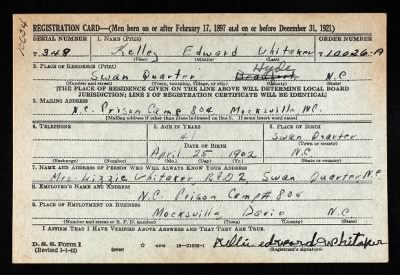 10634
REGISTRATION CARD—(Men born on or after February 17, 1897 and on or before December 31, 1921)
SERIAL NUMBER 1. NAME (Print) ORDER NUMBER
T 348 Kelley Edward Whitaker 10026-A
(First) (Middle) (Last)
2. PLACE OF RESIDENCE (Print) Hyde
Swan Quarter N.C.
(Number and street) (Town, township, village, or city) (County) (State)
[THE PLACE OF RESIDENCE GIVEN ON THE LINE ABOVE WILL DETERMINE LOCAL BOARD
JURISDICTION; LINE 2 OF REGISTRATION CERTIFICATE WILL BE IDENTICAL]
3. MAILING ADDRESS
N.C. Prison Camp 804 Mocksville N.C.
[Mailing address if other than place indicated on line 2. If same insert word same]
4. TELEPHONE 5. AGE IN YEARS 6. PLACE OF BIRTH
41 Swan Quarter
DATE OF BIRTH (Town or county)
April 25 1902 N.C.
(Exchange) (Number) (Mo.) (Day) (Yr.) (State or country)
7. NAME AND ADDRESS OF PERSON WHO WILL ALWAYS KNOW YOUR ADDRESS
Mrs. Lizzie Whitaker RFD2, Swan Quarter, N.C.
8. EMPLOYER'S NAME AND ADDRESS
N.C. Prison Camp # 804
9. PLACE OF EMPLOYMENT OR BUSINESS
Mocksville Davie N.C.
(Number and street or R. F. D. number) (Town) (County) (State)
I AFFIRM THAT I HAVE VERIFIED ABOVE ANSWERS AND THAT THEY ARE TRUE.
D. S. S. Form 1
(Revised 1-1-42) (over) GPO 16-21630-1 Kellie edward Whitaker
(Registrant's signature)